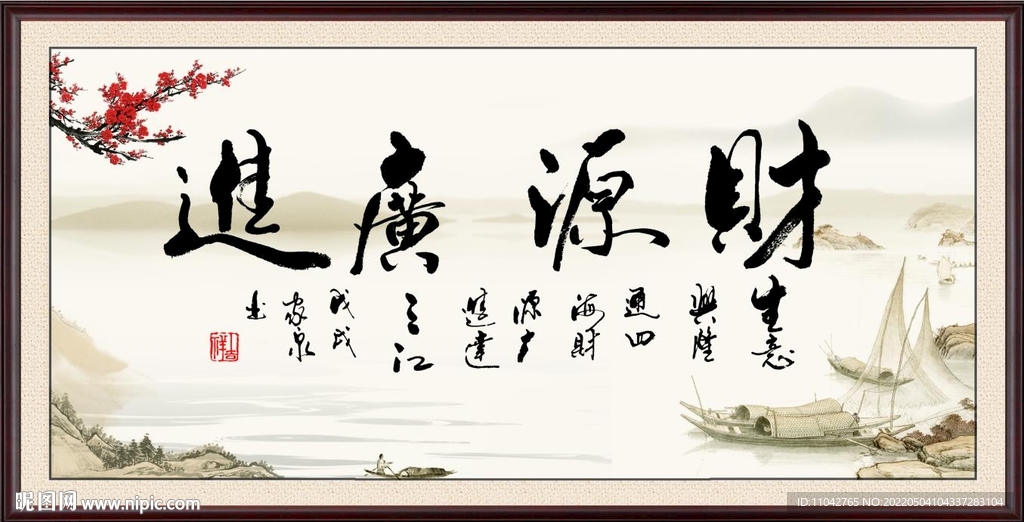 財源廣進
生意
興隆
通四
海財
源广
進達
三江
戊戌
家泉
书
昵图网 www.nipic.com
ID:11042765 NO:20220504104337283104